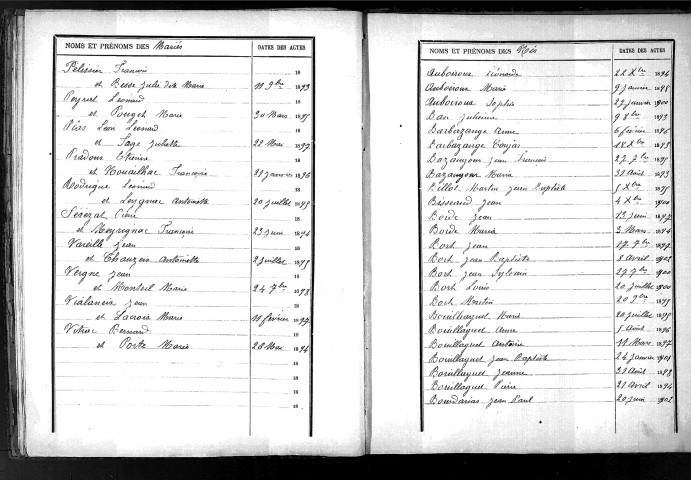 NOMS ET PRÉNOMS DES Mariés DATES DES ACTES
18
Pélissier François 18
et Besse Julie dite Marie 11 9bre 1893
Peyrat Léonard 18
et Pouget Marie 30 Mars 1895
Plas Léon Léonard 18
et Sage Juliette 22 Mai 1897
Pradoux Etienne 18
et Nouailhac Françoise 1896
Rodrigue Léonard 18
et Leygnac Antoinette 20 juillet 1895
18
et Meyrignac Françoise 23 juin 1894
Vareille Jean 18
et Chauzeix Antoinette 2 juillet 1895
Vergne Jean 18
et Monteil Marie 24 7bre 1898
Vialaneix Jean 18
et Lacroix Marie 11 février 1897
Bernard 18
et Porte Marie 28 Mai 1894
18
18
18
NOMS ET PRÉNOMS DES Nés DATES DES ACTES
Auboiroux Léonarde 22 Xbre 1894
Auboiroux Marie 9 janvier 1898
Auboiroux Sophie 27 janvier 1900
9 8bre 1893
Barbazange Anne 6 février 1896
Barbazange 18 Xbre 1893
Bazangeon Jean François 27 7bre 1895
Bazangeon Maria 31 Août 1893
Billot Martin Jean Baptiste 5 Xbre 1895
Jean 4 Xbre 1900
Borde Jean 13 Juin 1897
Borde Maria 3 Mars 1894
Bort Jean 17 7bre 1897
Bort Jean Baptiste 8 Avril 1902
Bort Jean Sylvain 27 7bre 1900
Bort Louis 20 juillet 1900
Bort Martin 20 9bre 1895
Bouillaguet Marie 20 juillet 1895
Bouillaguet Anna 5 Août 1896
Bouillaguet Antoine 11 Mars 1897
Bouillaguet Jean Baptiste 24 janvier 1901
Bouillaguet Jeanne 31 Août 1899
Bouillaguet Pierre 21 Avril 1894
Bourdarias Jean Paul 20 Juin 1902